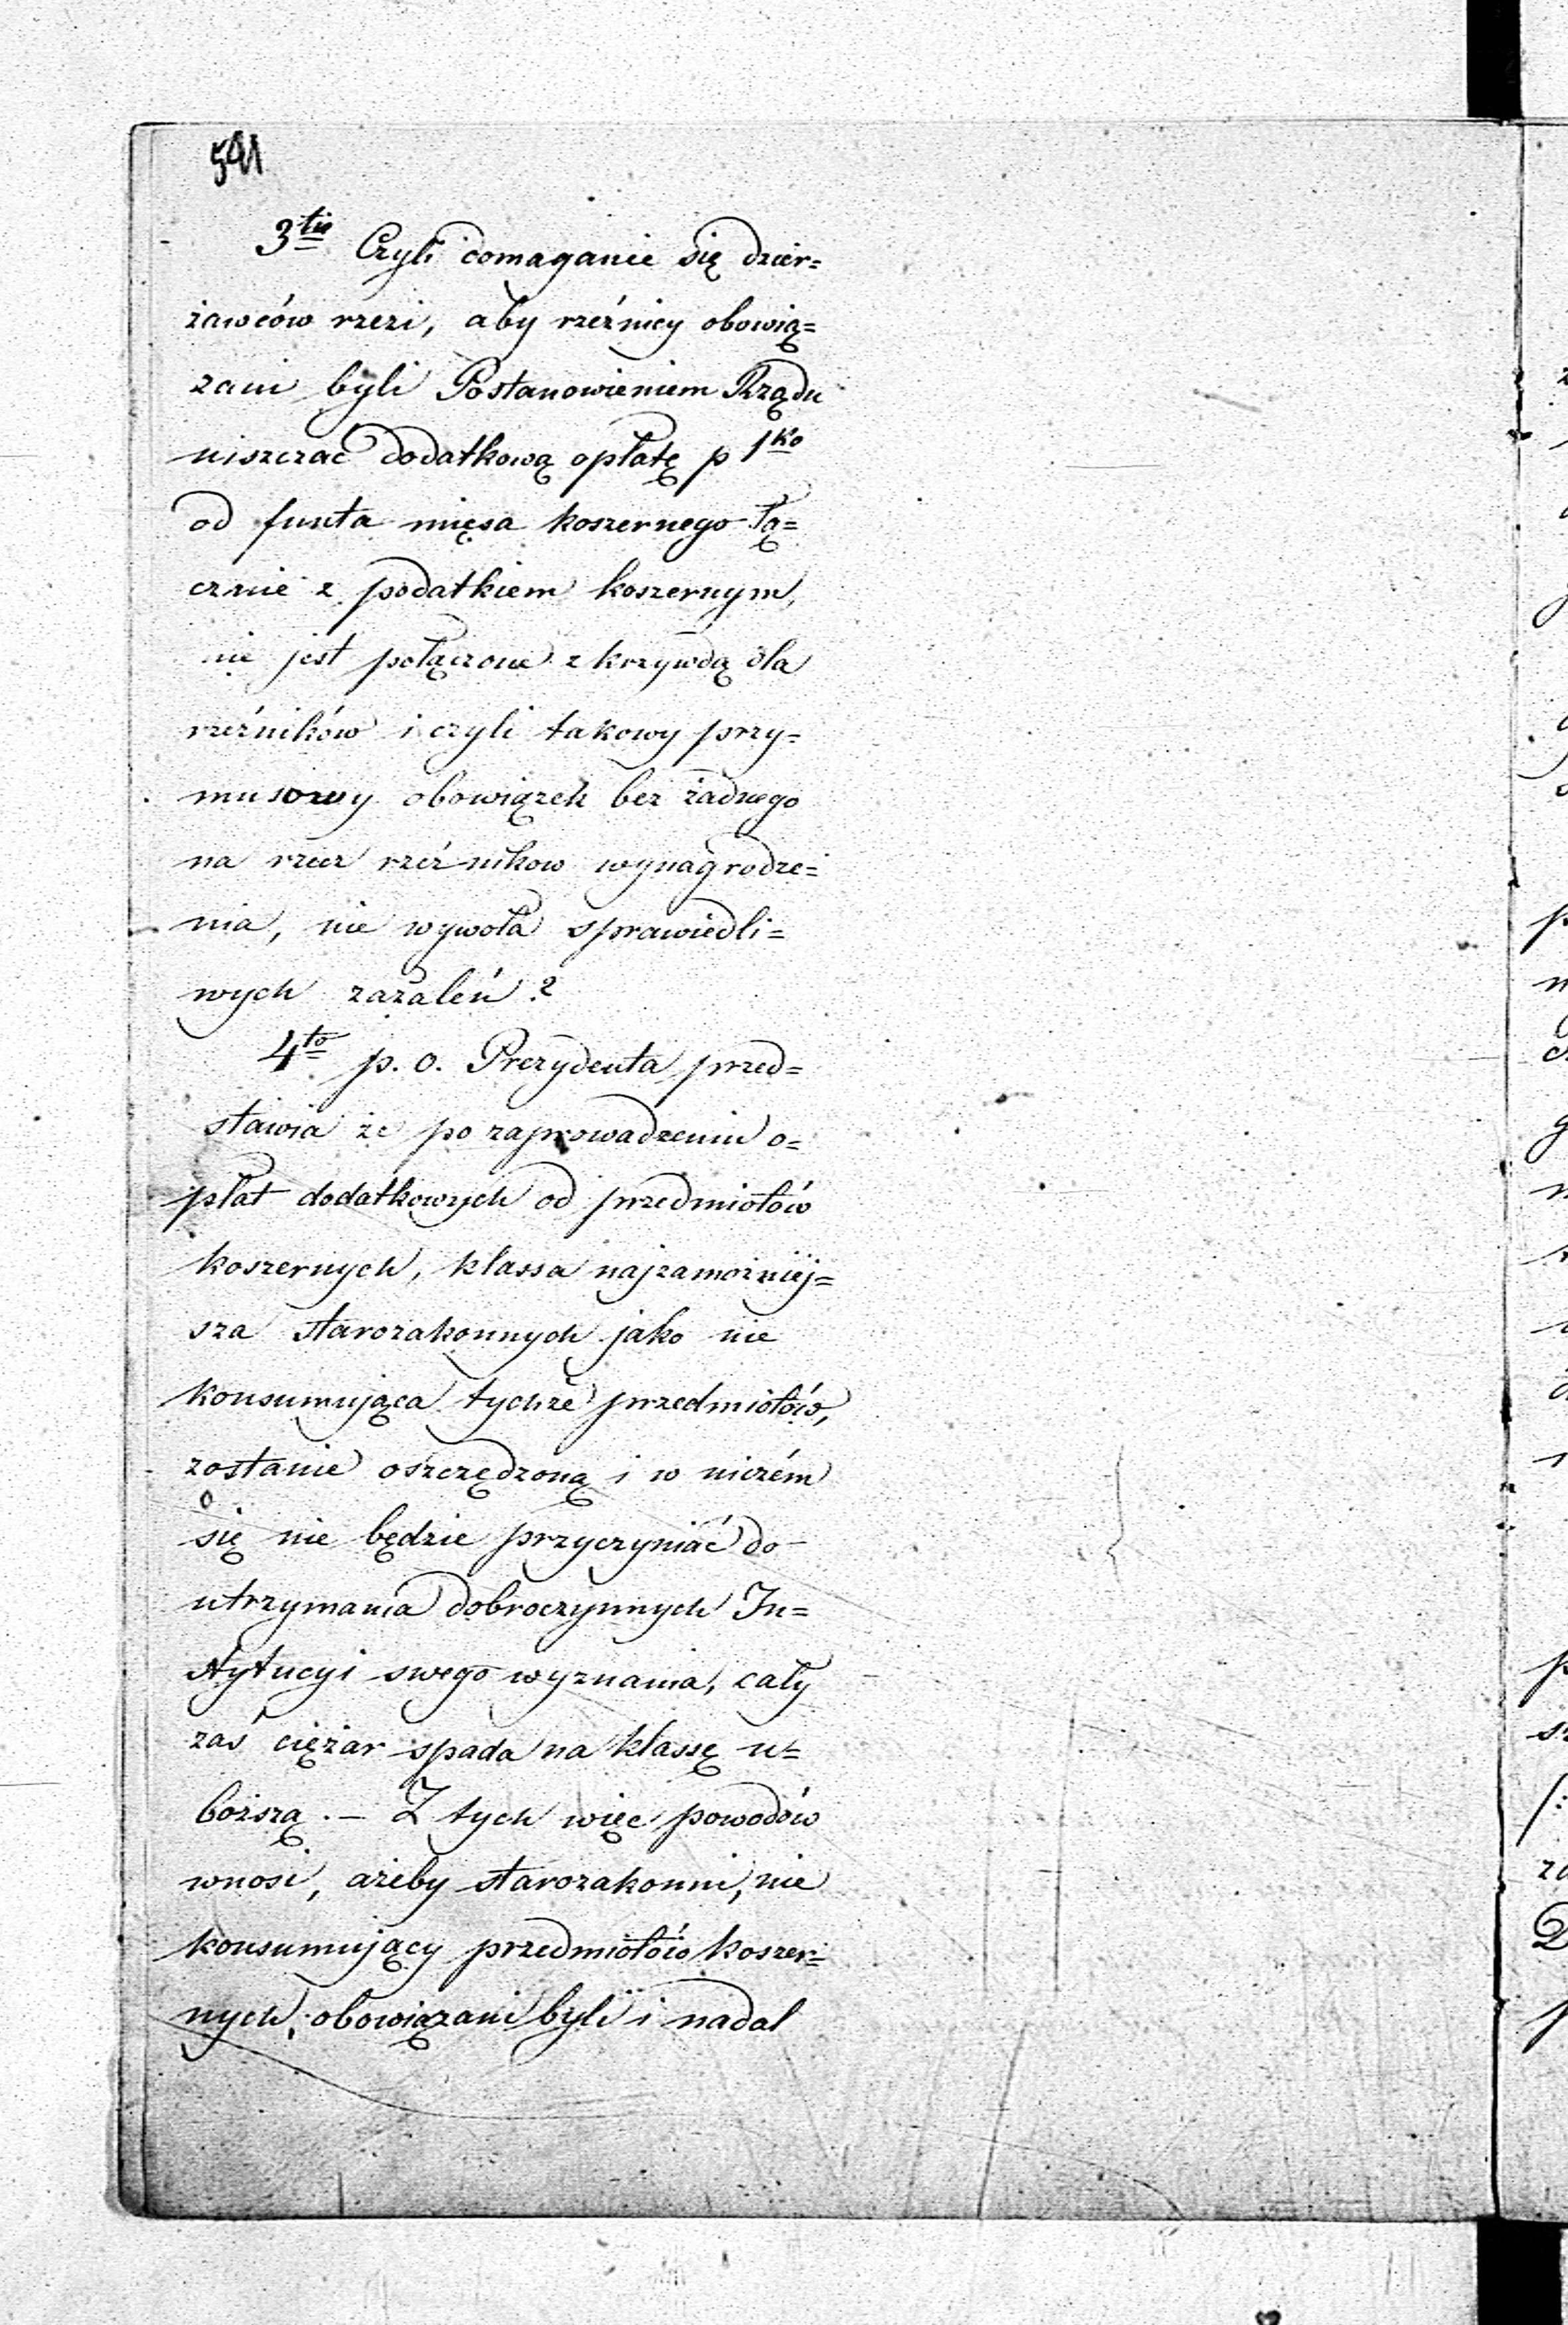 541
3tio Czyli domaganie się dzier=
żawców rzezi, aby rzeźnicy obowią=
zani byli Postanowieniem Rządu
uiszczać dodatkową opłatę p 1ko
od funta mięsa koszernego łą=
cznie z podatkiem koszernym,
nie jest połączone z krzywdą dla
rzeźników i czyli takowy przy=
musowy obowiązek bez żadnego
na rzecz rzeźnikow wynagrodze=
nia, nie wywoła sprawiedli=
wych zażaleń?
4to p. o. Prezydenta przed=
stawia że po zaprowadzeniu o=
płat dodatkowych od przedmiotów
koszernych, klassa najzamożniej=
sza starozakonnych jako nie
konsumująca tychże przedmiotów,
zostanie oszczędzoną i w niczém
się nie będzie przyczyniać do
utrzymania dobroczynnych In=
stytucyi swego wyznania, cały
zaś ciężar spada na klassę u=
boższą. — Z tych więc powodów
wnosi, ażeby starozakonni, nie
konsumujący przedmiotów koszer=
nych, obowiązani byli i nadal